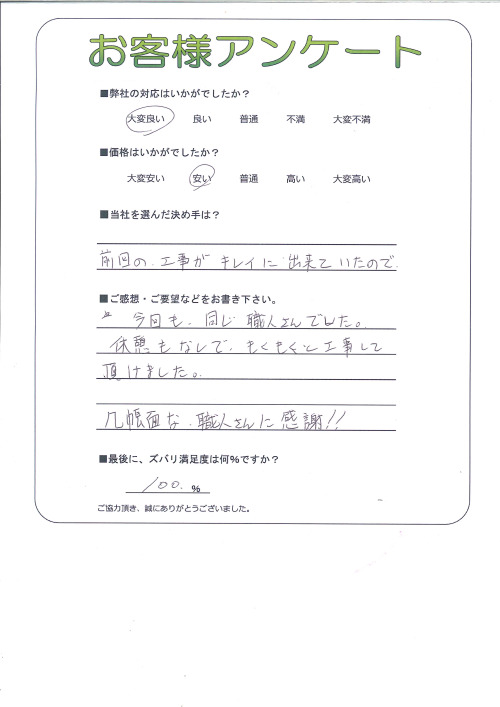 お客様アンケート
■弊社の対応はいかがでしたか？
大変良い 良い 普通 不満 大変不満
■価格はいかがでしたか？
大変安い 安い 普通 高い 大変高い
■当社を選んだ決め手は？
前回の工事がキレイに出来ていたので
■ご感想・ご要望などをお書き下さい。
今回も、同じ職人さんでした。
休憩もなしで、もくもくと工事して
頂けました。
几帳面な職人さんに感謝!!
■最後に、ズバリ満足度は何%ですか？
100. %
ご協力頂き、誠にありがとうございました。